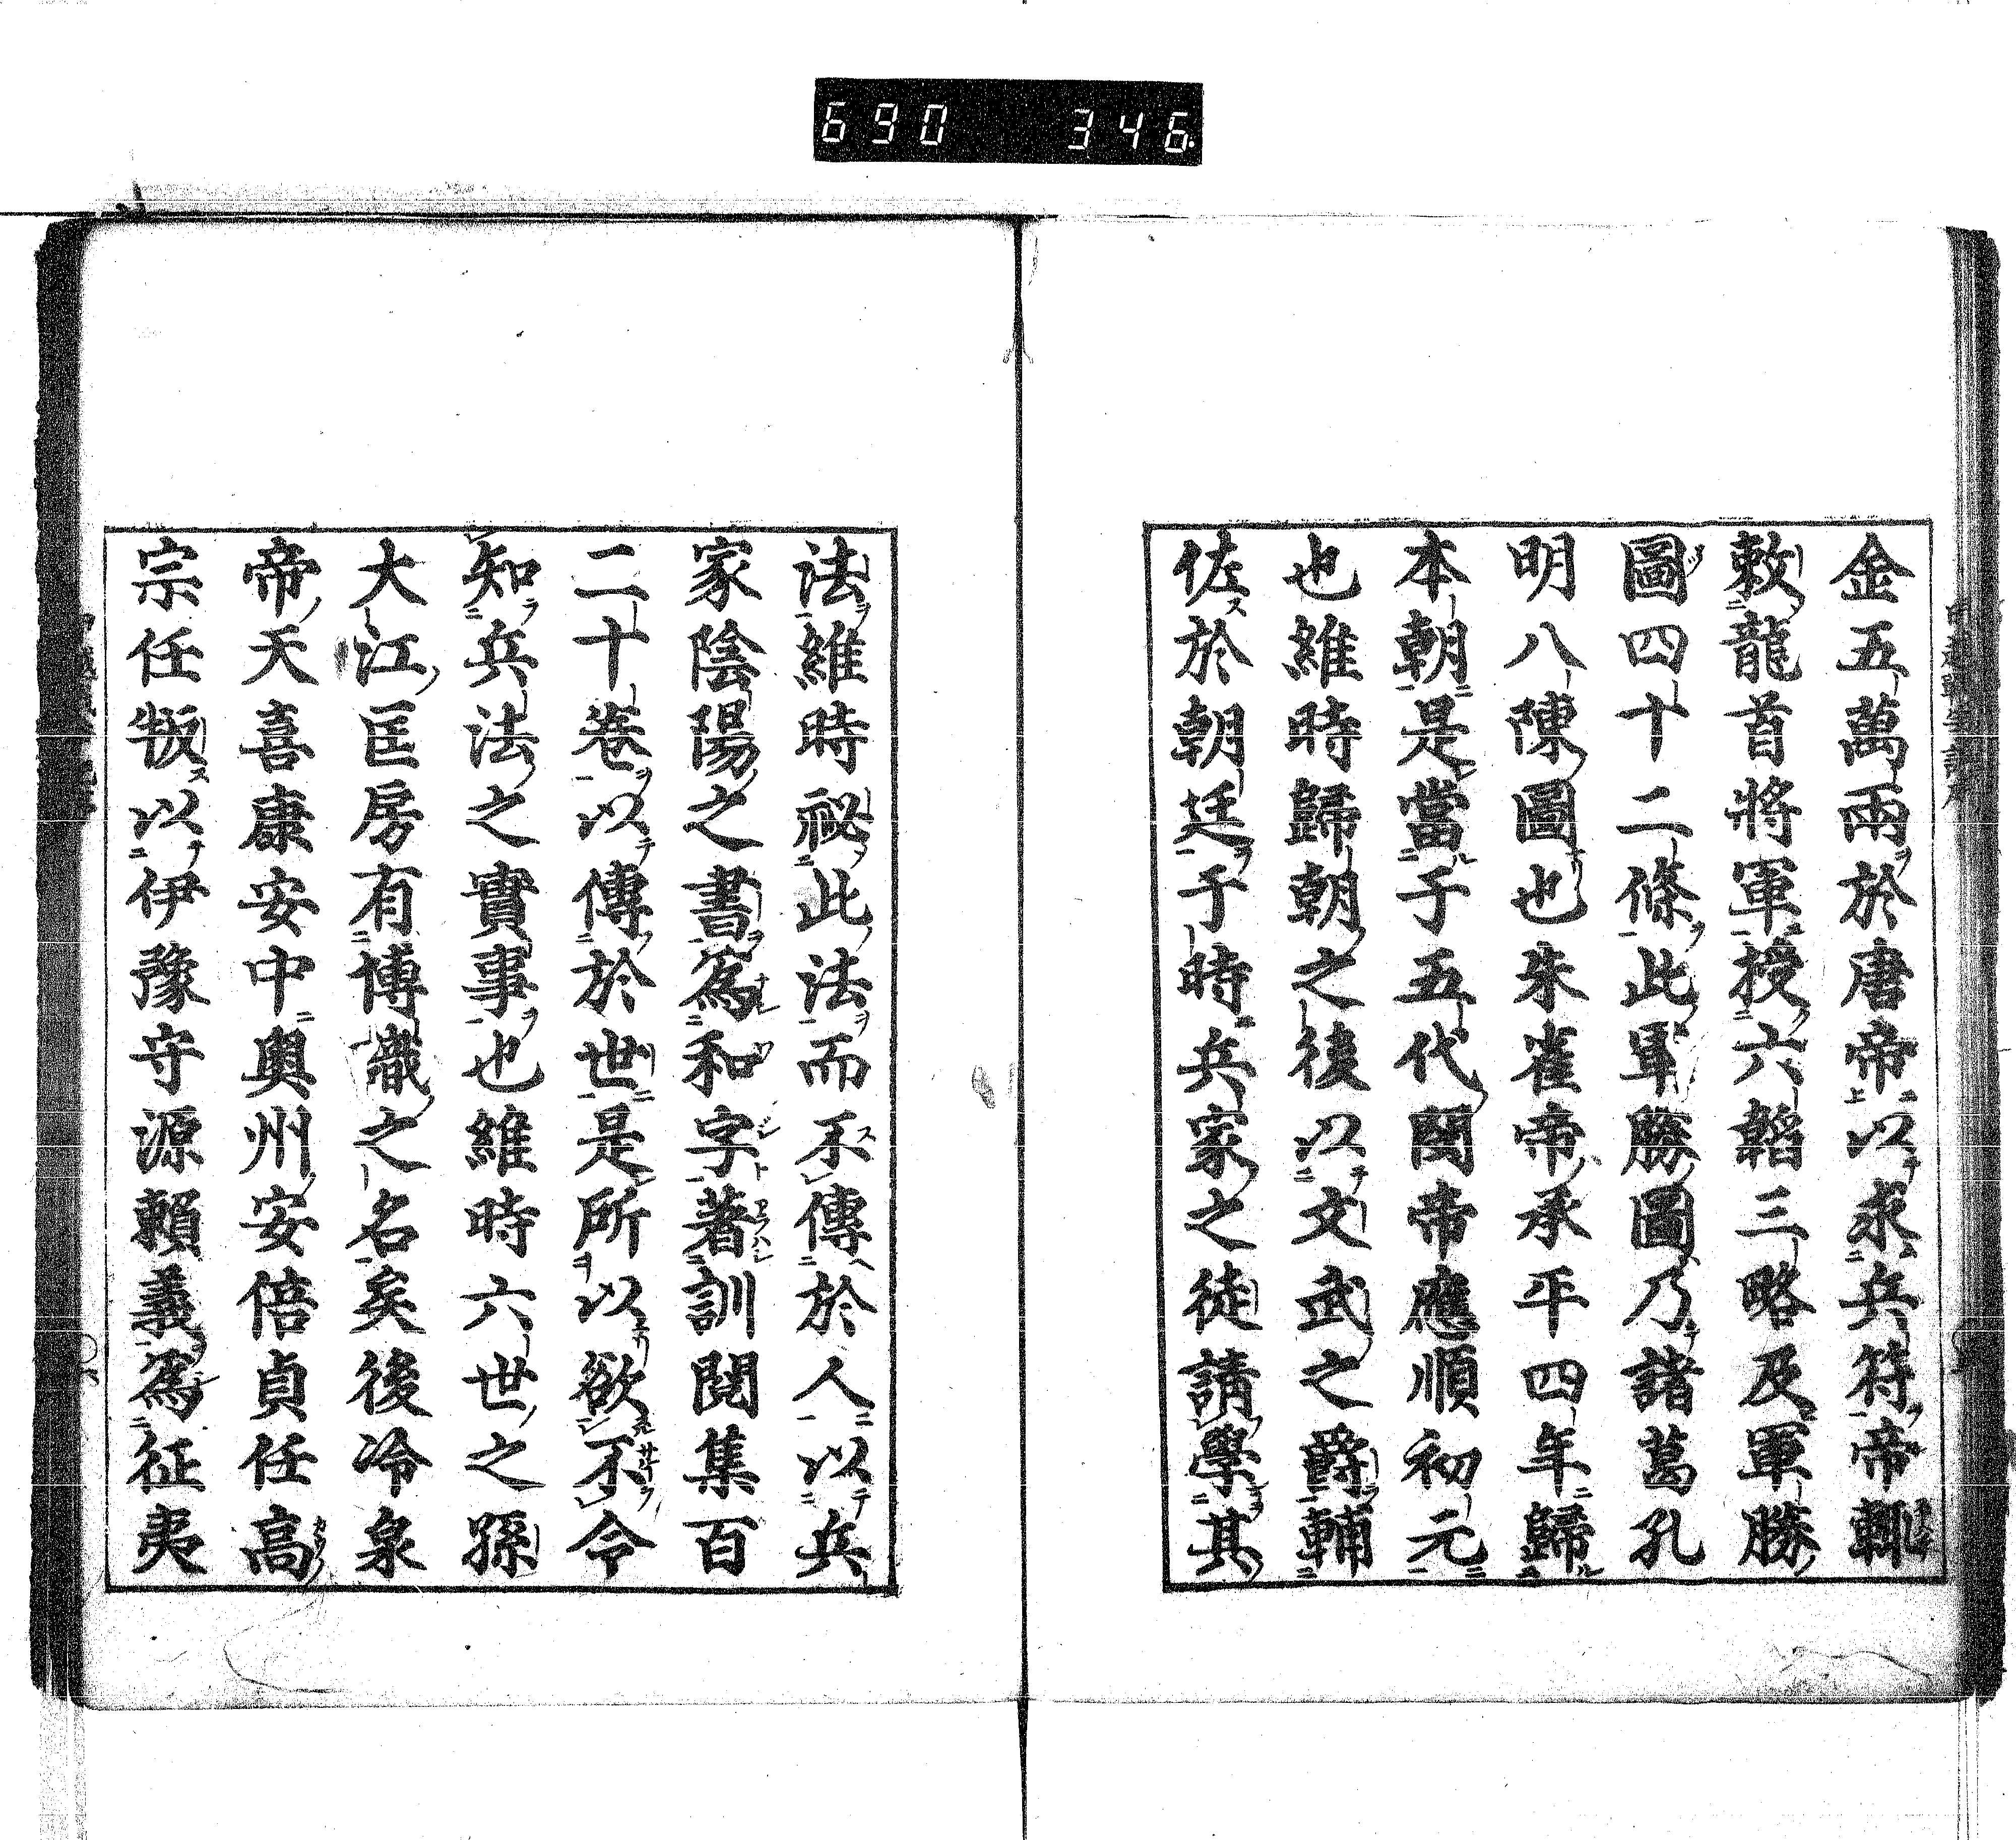 690 346
金五萬兩於唐帝以求兵符帝輙
敕龍首將軍授六韜三略及軍勝
圖四十二條此軍勝圖乃諸葛孔
明八陳圖也朱雀帝承平四年歸
本朝是當于五代閔帝應順初元
也維時歸朝之後以文武之爵輔
佐於朝廷于時兵家之徒請學其
法維時祕此法而不傳於人以兵
家陰陽之書爲和字著訓閱集百
二十卷以傳於世是所以欲不令
知兵法之實事也維時六世之孫
大江匡房有博識之名矣後冷泉
帝天喜康安中奧州安倍貞任高
宗任叛以伊豫守源賴義爲征夷